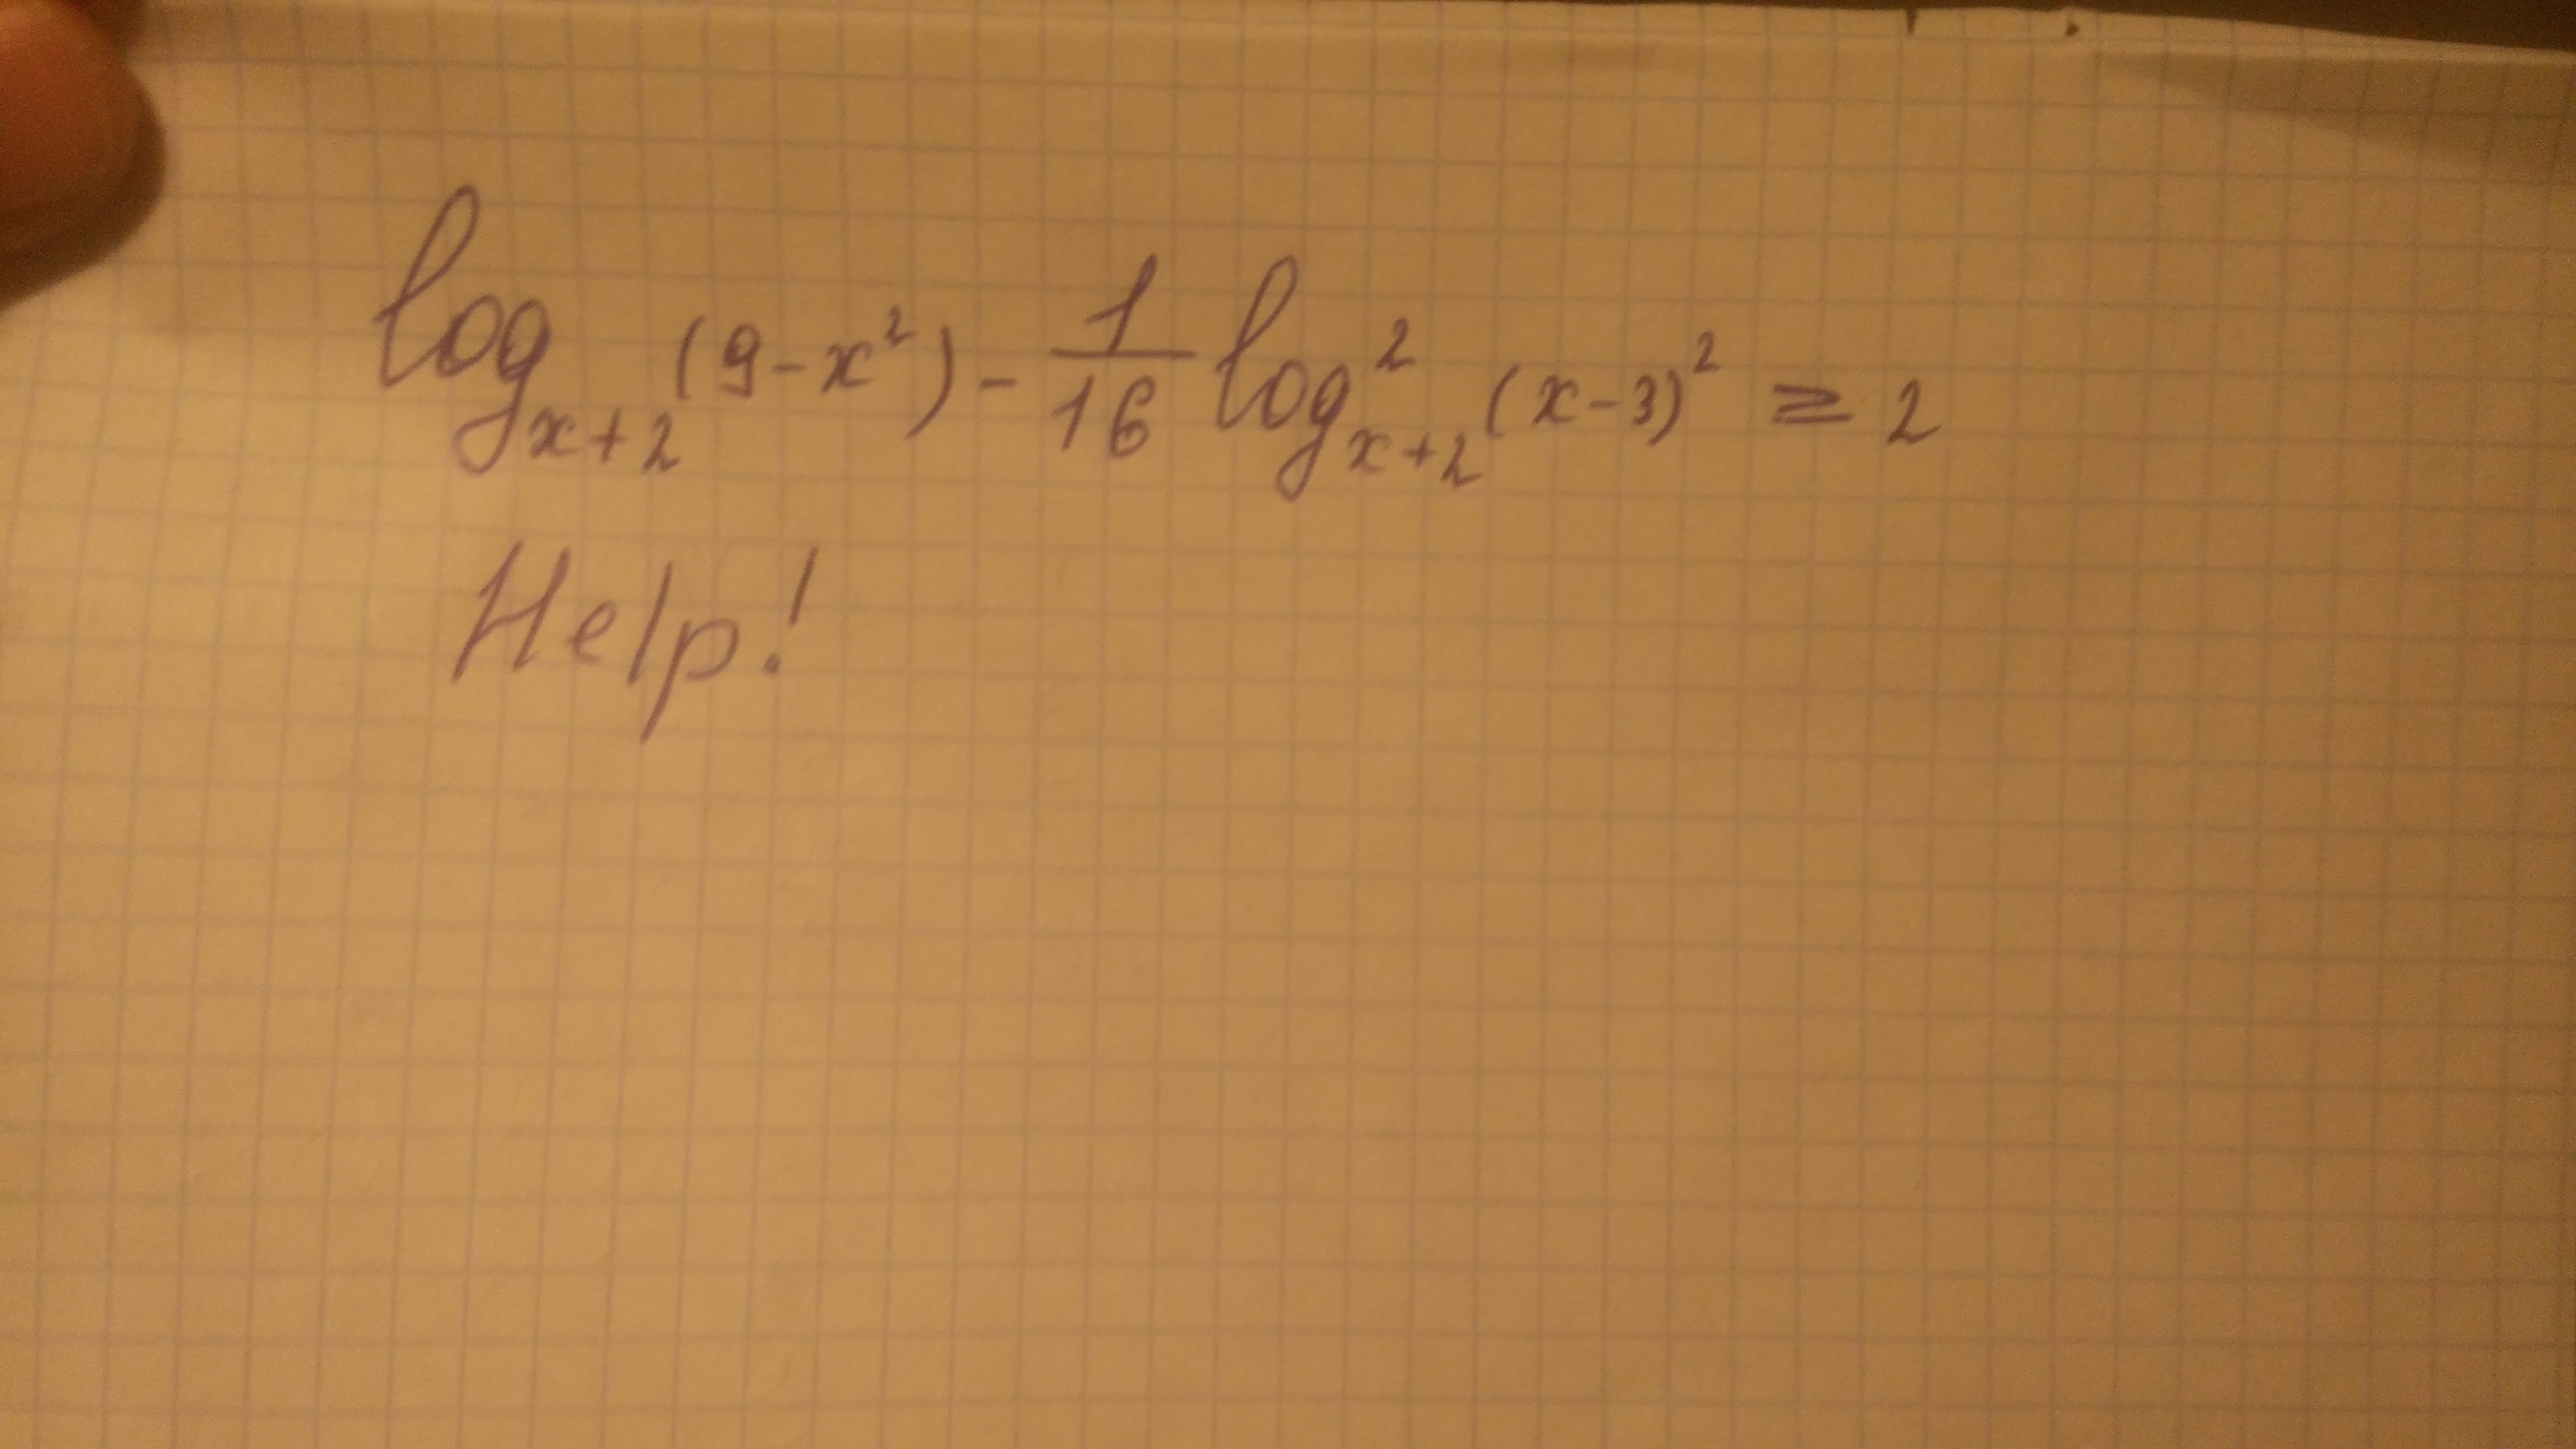 log_{x+2}(9-x²) - 1/16 log²_{x+2}(x-3)² ≥ 2
Help!